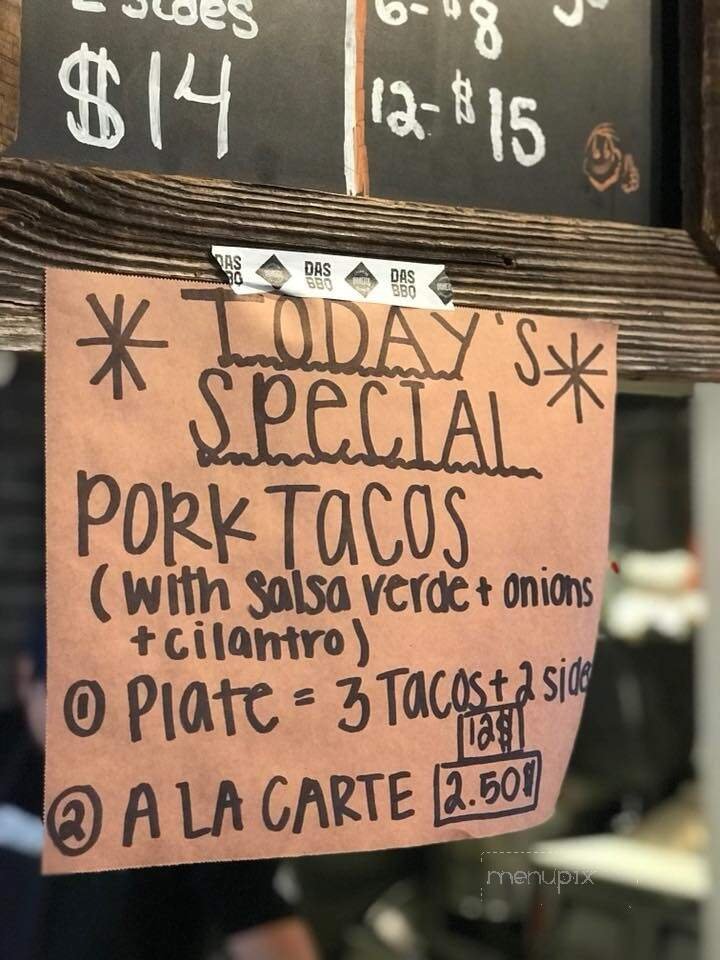 2 Sides
$14
6-$8
12-$15
DAS BBQ DAS BBQ DAS BBQ
* TODAY'S *
SPECIAL
PORK TACOS
(with salsa verde + onions
+ cilantro)
① Plate = 3 Tacos + 2 side
12$
② A LA CARTE 2.50$
menupix